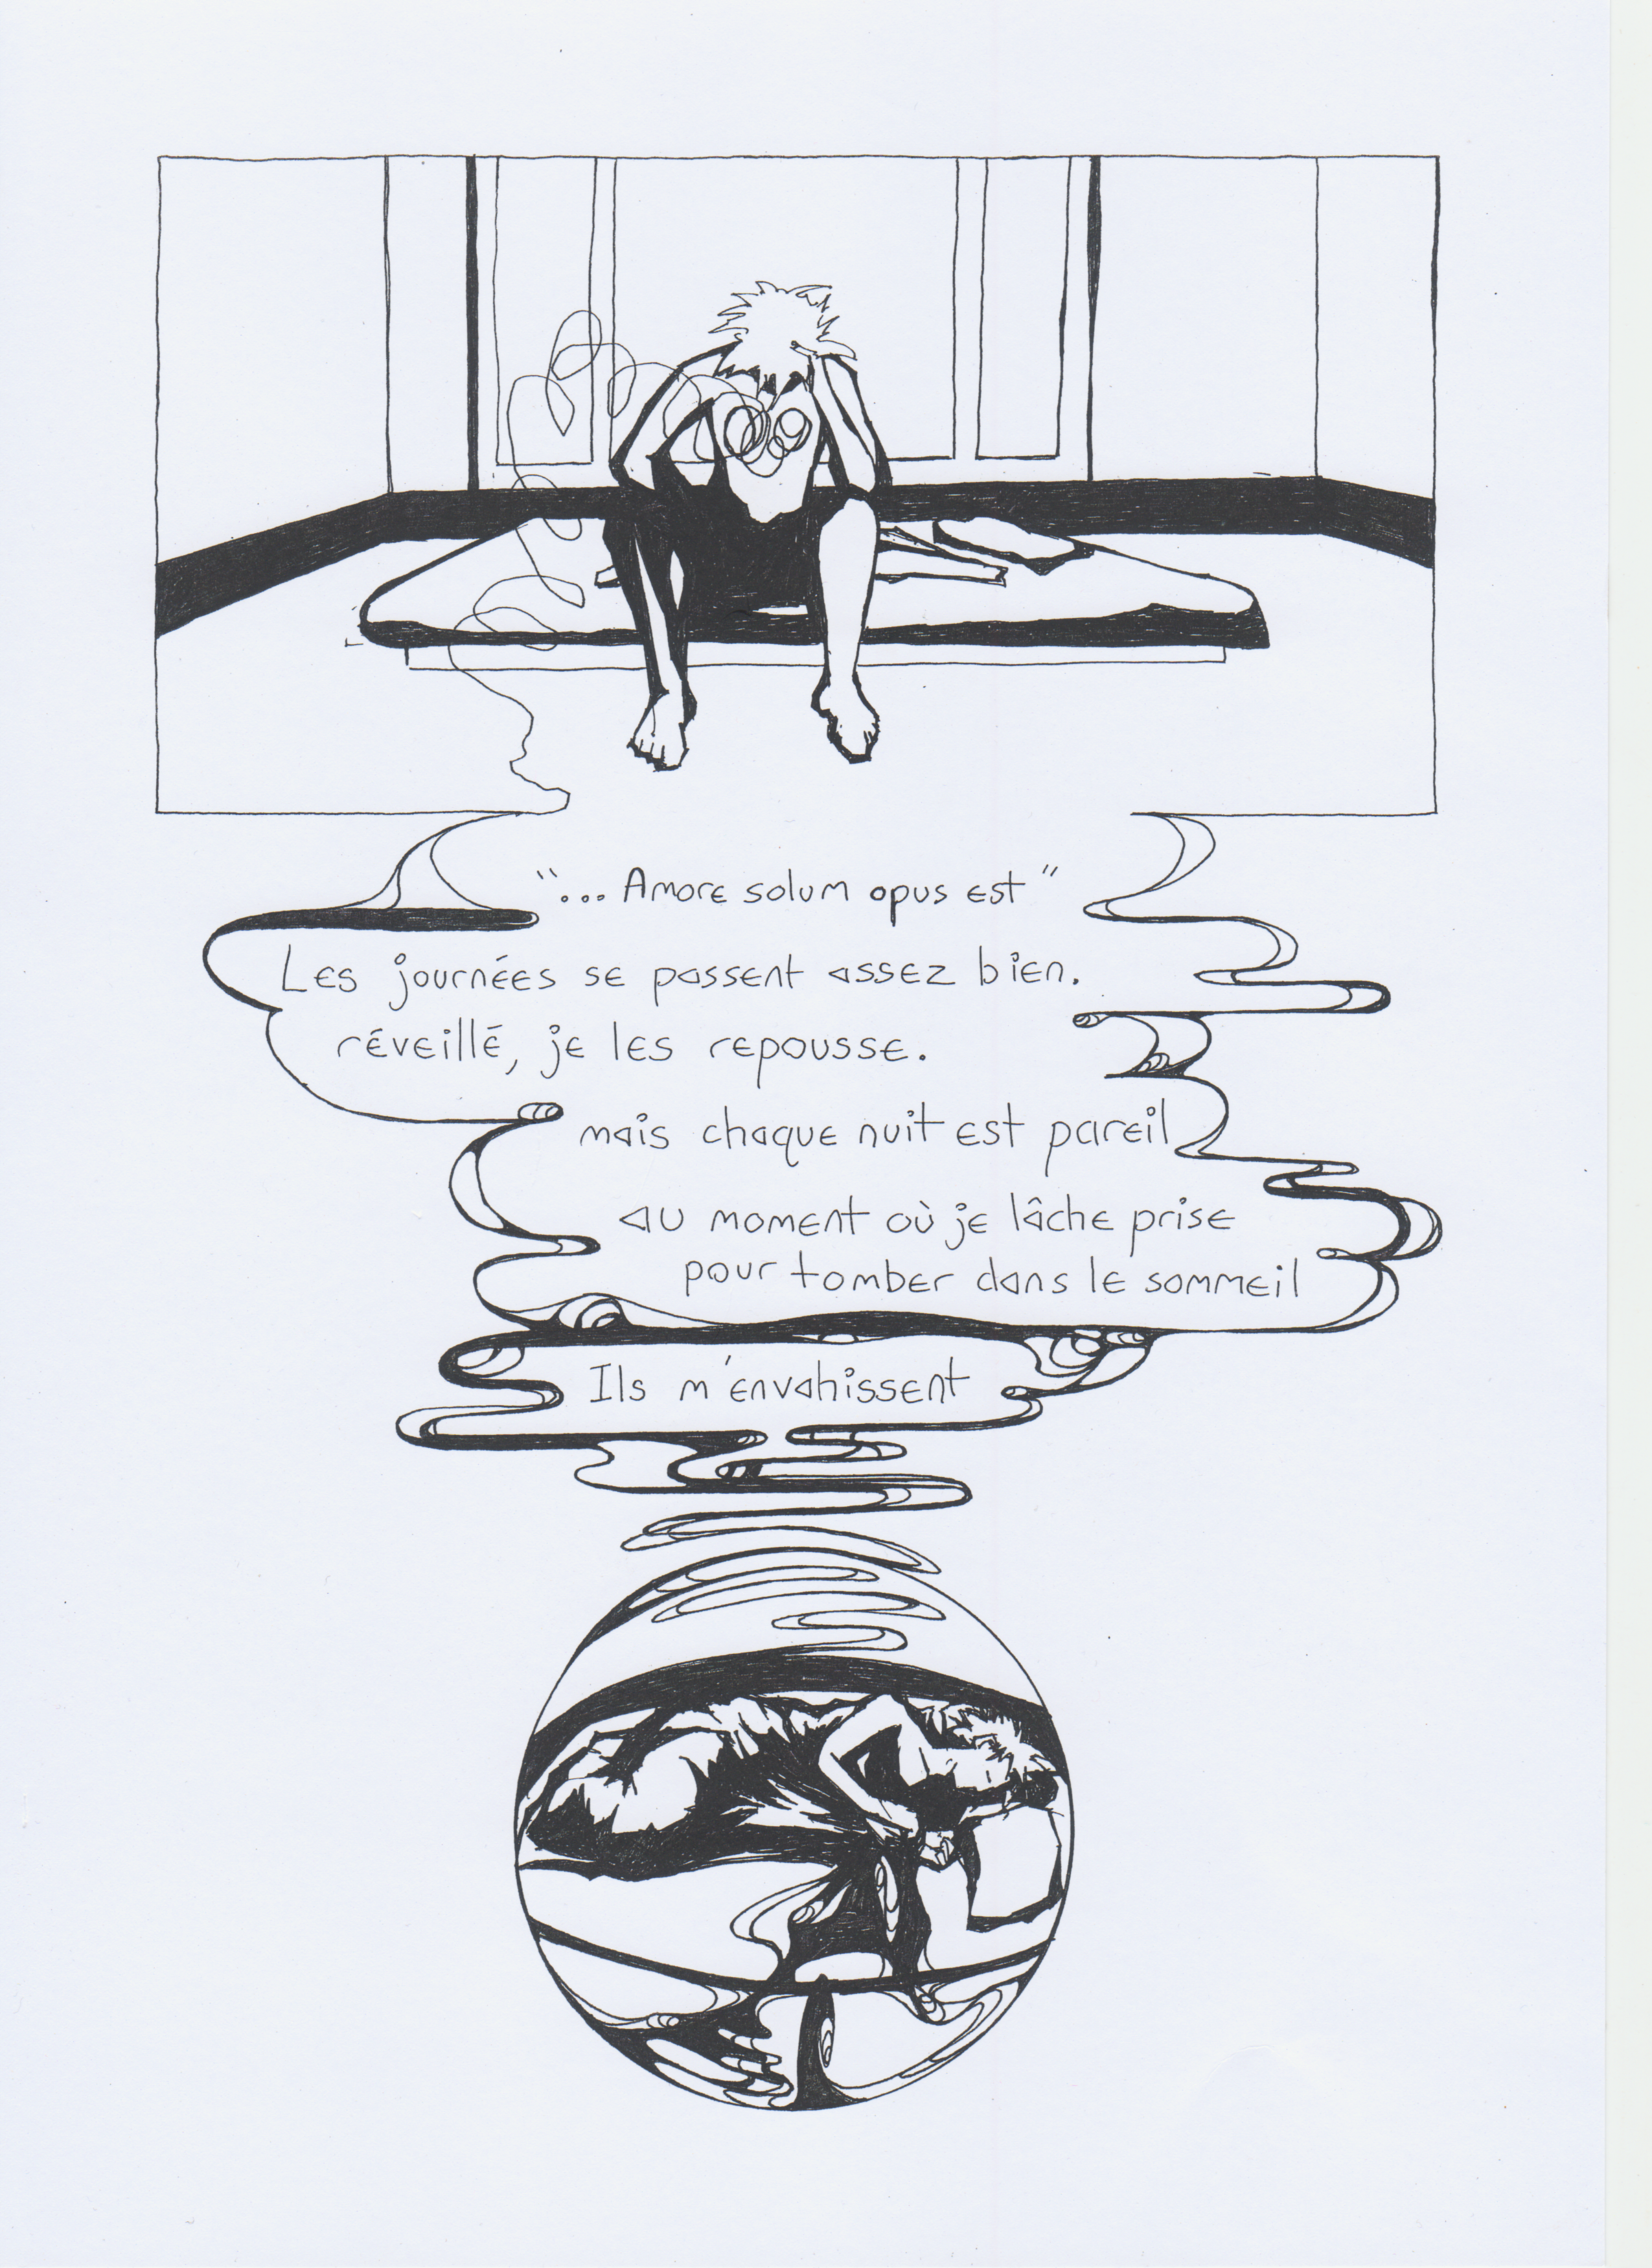 "... Amore solum opus est"
Les journées se passent assez bien.
réveillé, je les repousse.
mais chaque nuit est pareil
au moment où je lâche prise
pour tomber dans le sommeil
Ils m'envahissent